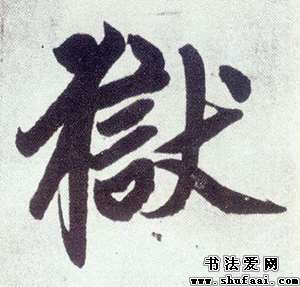 獄
书法爱网
www.shufaai.com